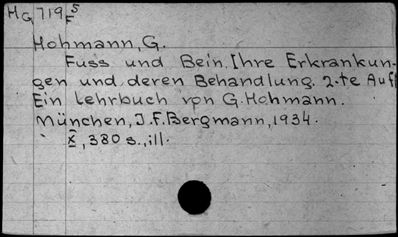 HG 719 5
F
Hohmann, G.
Fuss und Bein. Ihre Erkrankun-
gen und deren Behandlung. 2.te Aufl
Ein Lehrbuch von G. Hohmann.
München, J.F. Bergmann, 1934.
X, 380 s., ill.